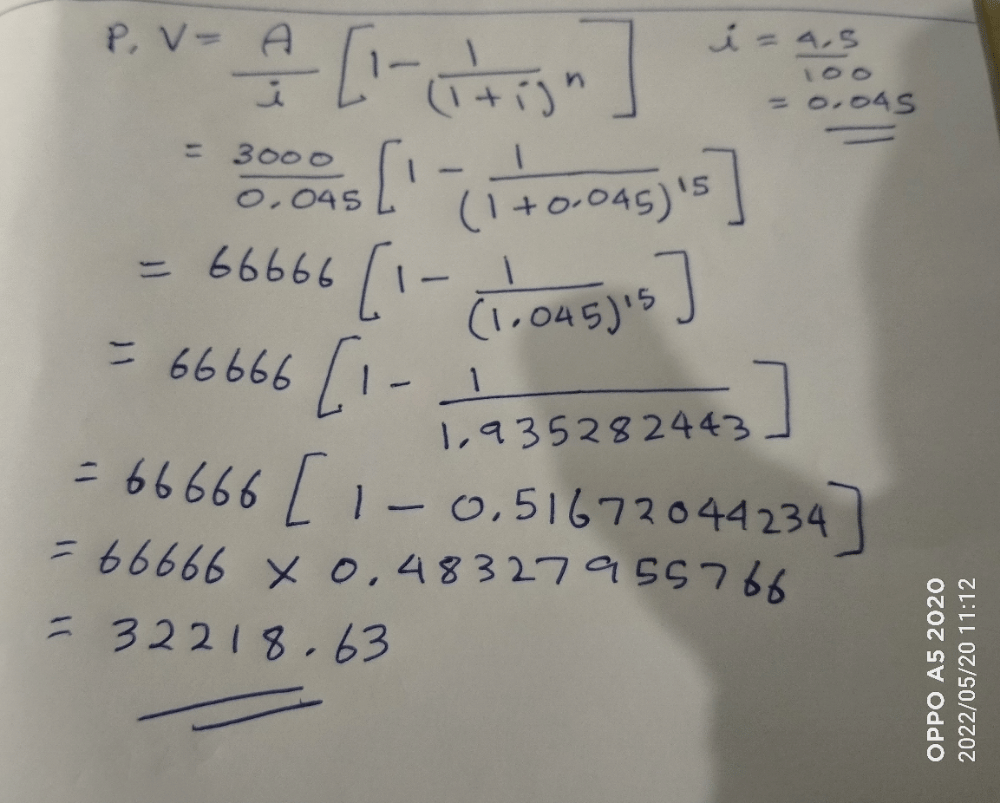 P. V = A/i [1 - 1/(1+i)^n]
i = 4.5/100
= 0.045
= 3000/0.045 [1 - 1/(1+0.045)^15]
= 66666 [1 - 1/(1.045)^15]
= 66666 [1 - 1/1.935282443]
= 66666 [1 - 0.51672044234]
= 66666 x 0.48327955766
= 32218.63
OPPO A5 2020
2022/05/20 11:12